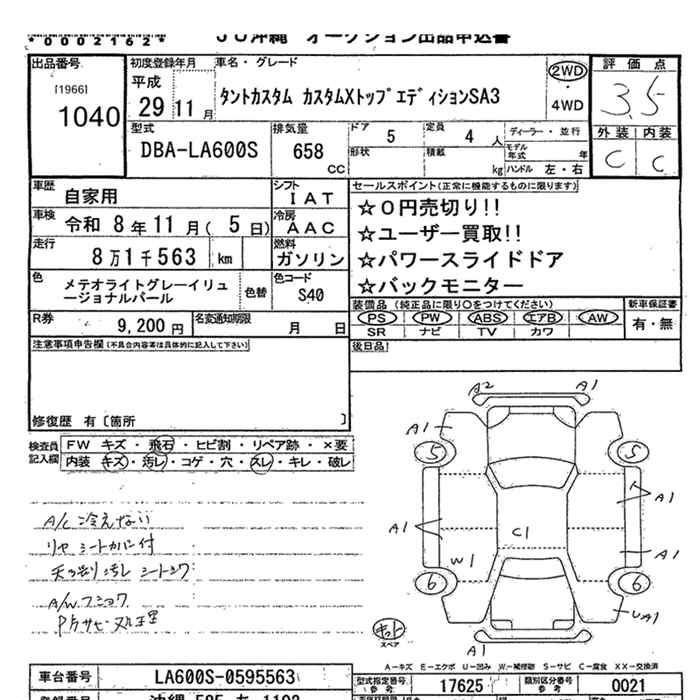 *0002162*
JU沖縄 オークション出品申込書
出品番号
[1966]
1040
初度登録年月
平成
29 11月
車名・グレード
タントカスタム カスタムXトップエディションSA3
2WD
・
4WD
評価点
3.5
外装 内装
C C
型式
DBA-LA600S
排気量
658
cc
ドア 5
定員 4 人
形状
積載 kg
ディーラー・並行
モデル年式 年
ハンドル 左・右
車歴 自家用
シフト IAT
車検 令和 8年11月(5日)
冷房 AAC
走行 8万1千563 km
燃料 ガソリン
色 メテオライトグレーイリュージョナルパール
色替
色コード S40
R券 9,200円
名変通知期限 月 日
セールスポイント(正常に機能するものに限ります)
☆0円売切り!!
☆ユーザー買取!!
☆パワースライドドア
☆バックモニター
装備品(純正品に限り○をつけてください)
PS PW ABS エアB AW
SR ナビ TV カワ
新車保証書
有・無
注意事項申告欄(不具合内容等は具体的に記入して下さい)
後日品
修復歴 有〔箇所 〕
検査員記入欄
FW キズ・飛石・ヒビ割・リペア跡・×要
内装 キズ・汚レ・コゲ・穴・スレ・キレ・破レ
A/C冷えない
リヤシートカバー付
天井張り汚レ シートスワ
A/W.フショク
下廻サビ処理
A2 A1
A1
5 5
A1
A1
A1
C1
W1
6 6
UA1
A1
スペア
A-キズ E-エクボ U-凹み W-補修跡 S-サビ C-腐食 XX-交換済
車台番号 LA600S-0595563
型式指定番号
参考
17625
類別区分番号
参考
0021